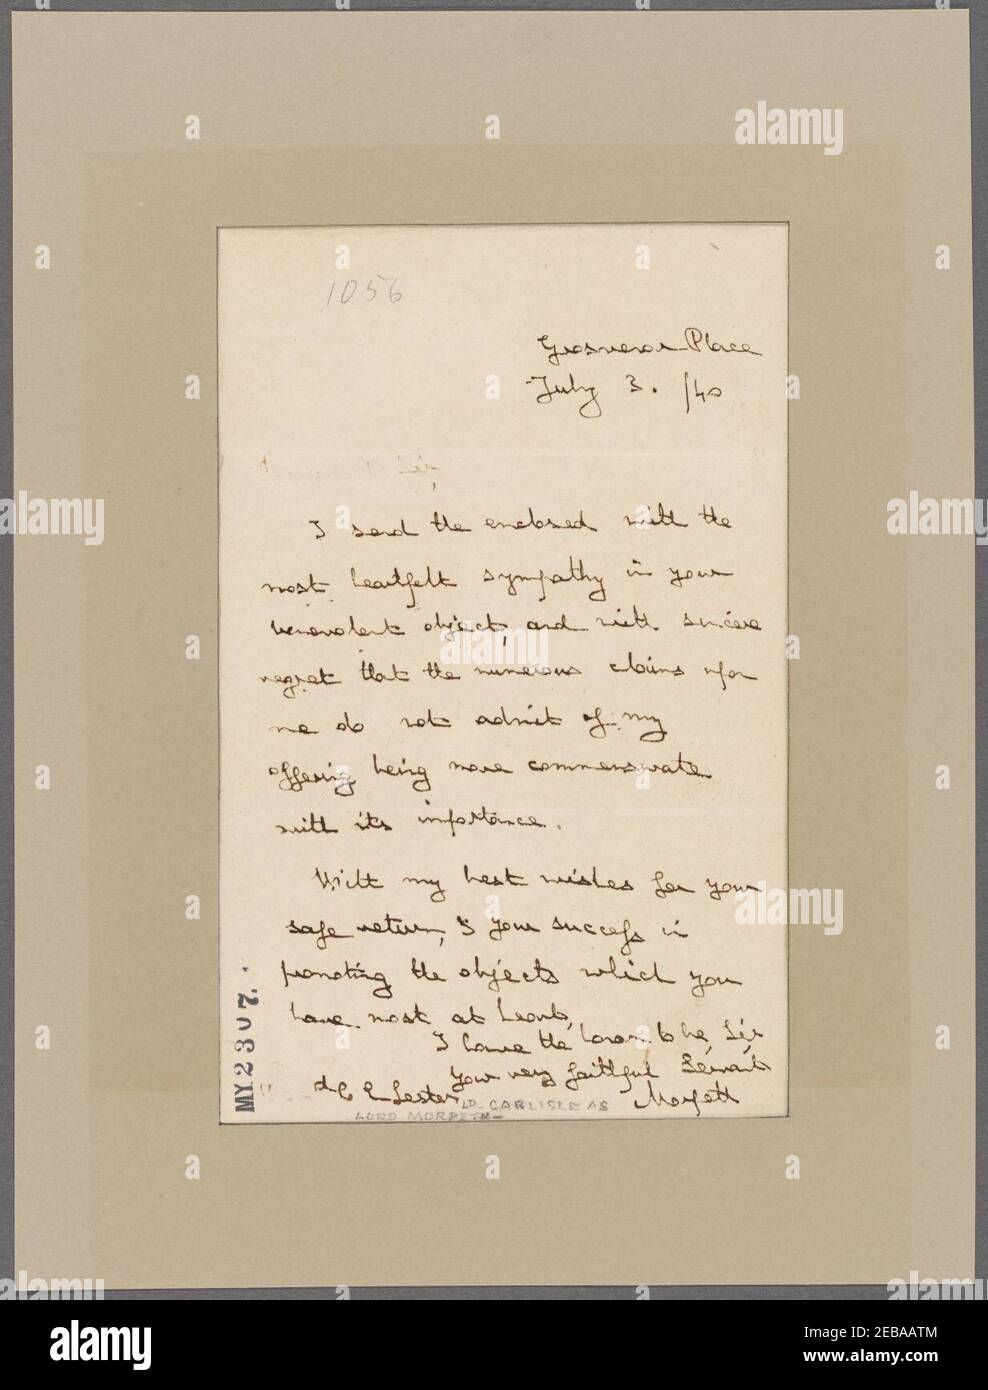 1056
Grosvenor Place
July 3. /40
Sir,
I send the enclosed with the
most heartfelt sympathy in your
benevolent object, and with sincere
regret that the numerous claims upon
me do not admit of my
offering being more commensurate
with its importance.
With my best wishes for your
safe return, & your success in
promoting the objects which you
have most at heart,
I have the honor to be, Sir
Your very faithful Servant
Morpeth
C E Lester
LD. CARLISLE AS
LORD MORPETH-
MY2307.
alamy
Image ID: 2EBAATM
www.alamy.com